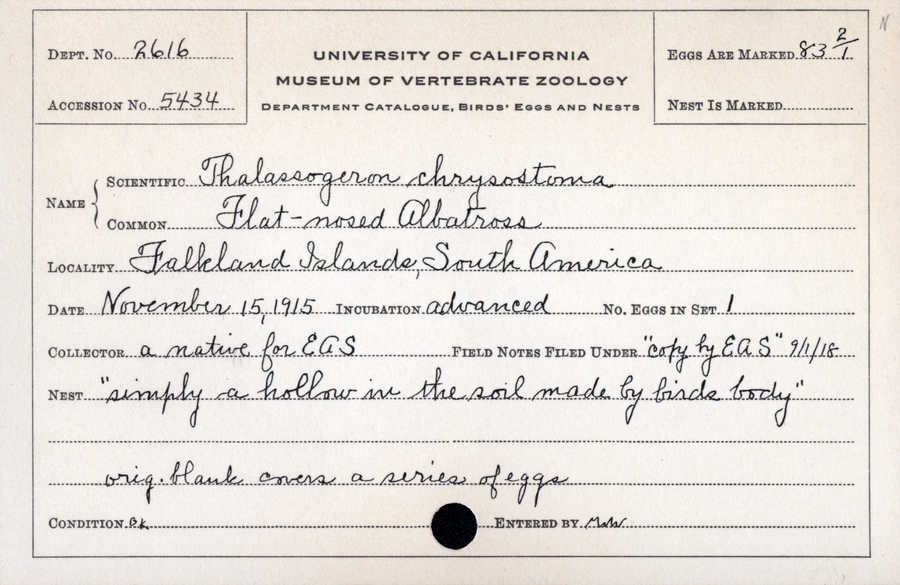 DEPT. NO. 2616
ACCESSION NO. 5434
UNIVERSITY OF CALIFORNIA
MUSEUM OF VERTEBRATE ZOOLOGY
DEPARTMENT CATALOGUE, BIRDS' EGGS AND NESTS
EGGS ARE MARKED 83 2/1
NEST IS MARKED
N
NAME { SCIENTIFIC Thalassogeron chrysostoma
COMMON Flat-nosed Albatross
LOCALITY Falkland Islands, South America
DATE November 15, 1915 INCUBATION advanced NO. EGGS IN SET 1
COLLECTOR a native for EAS FIELD NOTES FILED UNDER "copy by EAS" 9/1/18
NEST "simply a hollow in the soil made by birds body"
orig. blank covers a series of eggs
CONDITION ok ENTERED BY